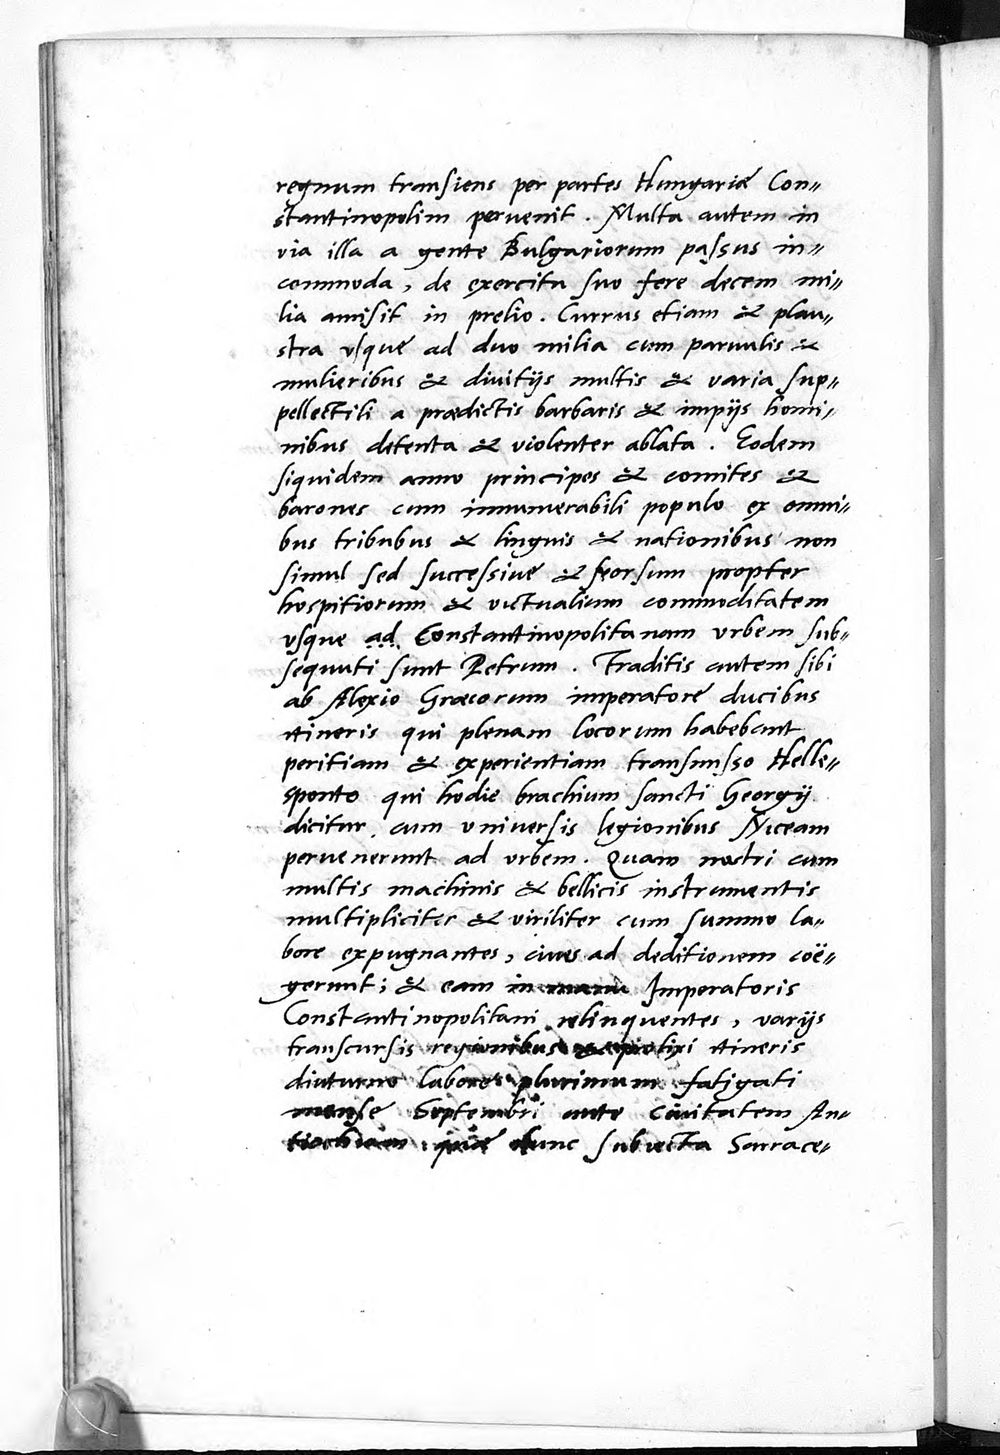 regnum transiens per partes Hungariæ Con„
stantinopolim peruenit. Multa autem in
via illa a gente Bulgariorum passus in„
commoda, de exercitu suo fere decem mi„
lia amisit in prelio. Currus etiam & plau„
stra vsque ad duo milia cum paruulis &
mulieribus & diuitijs multis & varia sup„
pellectili a prædictis barbaris & impijs homi„
nibus detenta & violenter ablata. Eodem
siquidem anno principes & comites &
barones cum innumerabili populo ex omni„
bus tribubus & linguis & nationibus non
simul sed successiue & seorsum propter
hospitiorum & victualium commoditatem
vsque ad Constantinopolitanam vrbem sub„
sequuti sunt Petrum. Traditis autem sibi
ab Alexio Græcorum imperatore ducibus
itineris qui plenam locorum habebant
peritiam & experientiam transmisso Helle„
sponto qui hodie brachium sancti Georgij
dicitur, cum vniuersis legionibus Niceam
peruenerunt ad vrbem. Quam nostri cum
multis machinis & bellicis instrumentis
multipliciter & viriliter cum summo la„
bore expugnantes, ciues ad deditionem coë„
gerunt; & eam in manu Imperatoris
Constantinopolitani relinquentes, varijs
transcursis regionibus & prolixi itineris
diuturno labore plurimum fatigati
mense Septembri ante ciuitatem An„
tiochiam, quæ tunc subiecta Sarrace„